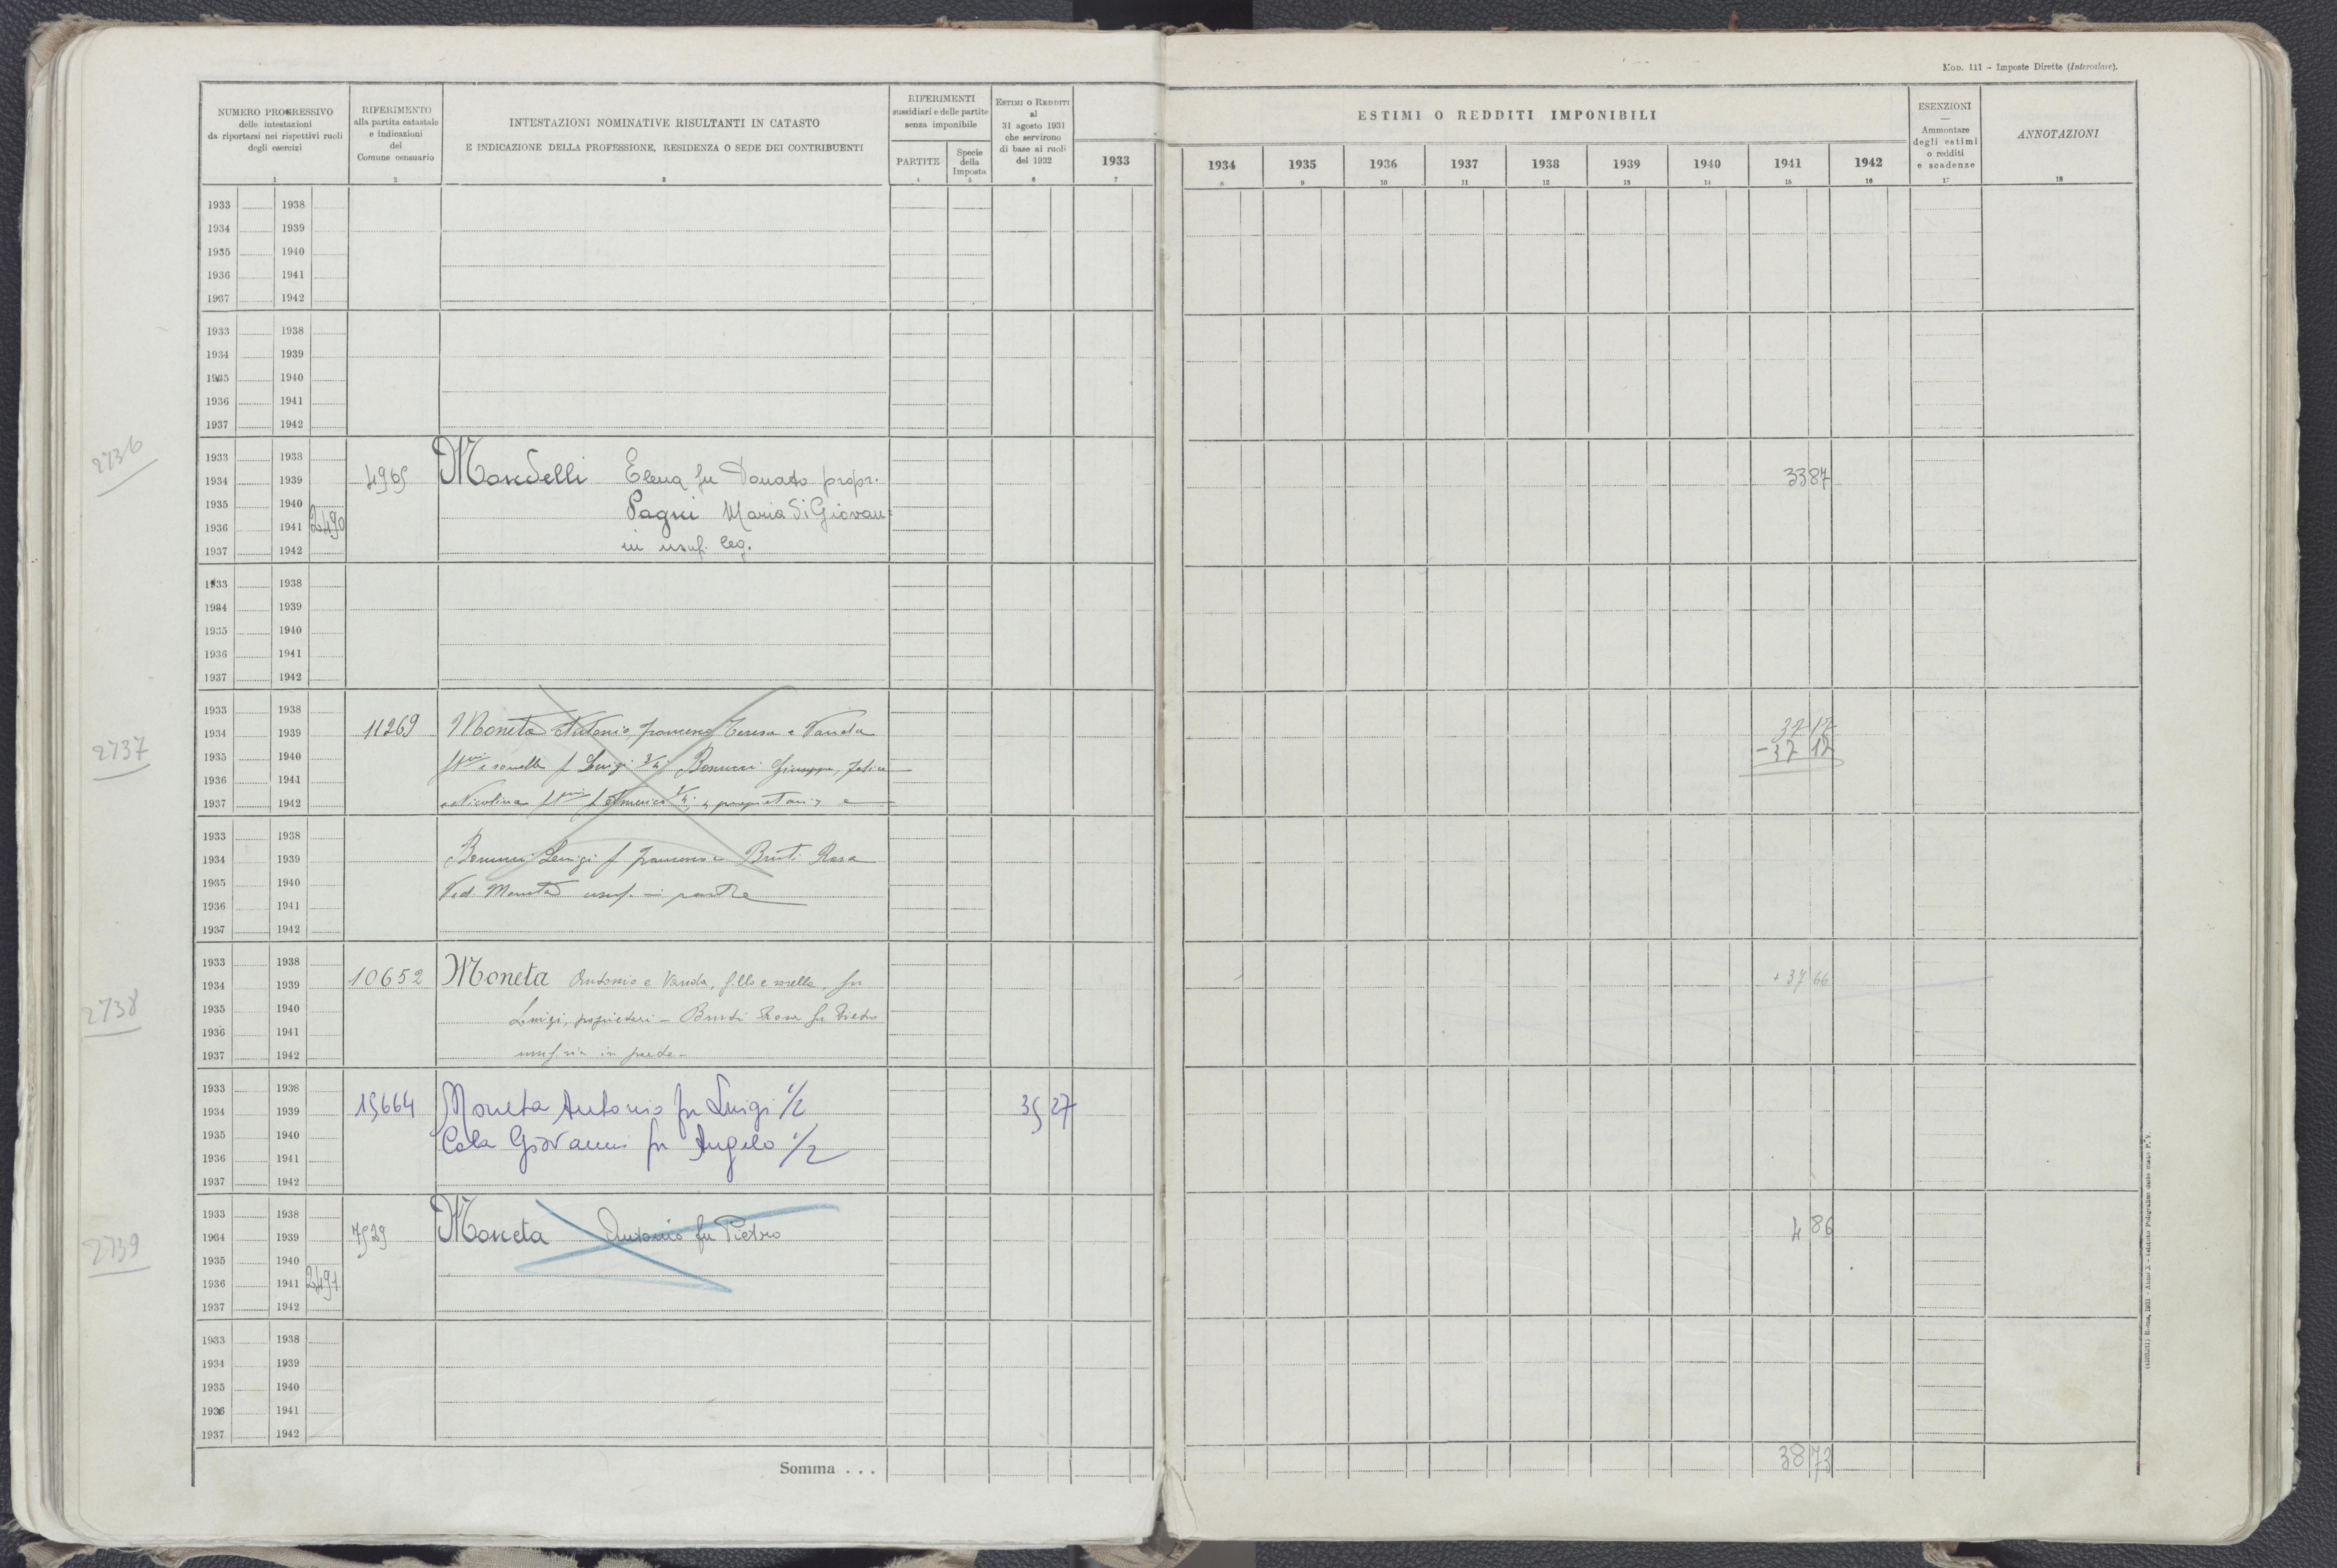 Mod. 111 - Imposte Dirette (Intercalare).
NUMERO PROGRESSIVO
delle intestazioni
da riportarsi nei rispettivi ruoli
degli esercizi
1
RIFERIMENTO
alla partita catastale
e indicazioni
del
Comune censuario
2
INTESTAZIONI NOMINATIVE RISULTANTI IN CATASTO
E INDICAZIONE DELLA PROFESSIONE, RESIDENZA O SEDE DEI CONTRIBUENTI
3
RIFERIMENTI
sussidiari e delle partite
senza imponibile
PARTITE
4
Specie
della
Imposta
5
ESTIMI O REDDITI
al
31 agosto 1931
che servirono
di base ai ruoli
del 1932
6
1933
7
ESTIMI O REDDITI IMPONIBILI
1934 1935 1936 1937 1938 1939 1940 1941 1942
8 9 10 11 12 13 14 15 16
ESENZIONI
Ammontare
degli estimi
o redditi
e scadenze
17
ANNOTAZIONI
18
1933 1938
1934 1939
1935 1940
1936 1941
1937 1942
1933 1938
1934 1939
1935 1940
1936 1941
1937 1942
2736
1933 1938
1934 1939 4965 Mondelli Elena fu Donato propr. 3387
1935 1940 Pagni Maria di Giovan
1936 1941 2490
1937 1942 in usuf. leg.
1933 1938
1934 1939
1935 1940
1936 1941
1937 1942
2737
1933 1938
1934 1939 11269 Moneta Antonio, Francesco Teresa e Vanda 37 12
1935 1940 e sorelle f Luigi 3/4; Bonucci Giuseppe, -37 12
1936 1941
1937 1942 e Nicolina f Americo 1/4; proprietari, e
1933 1938
1934 1939 Bonucci Luigi f Francesco e Bruti Rosa
1935 1940 Ved. Moneta usuf. in parte
1936 1941
1937 1942
2738
1933 1938
1934 1939 10652 Moneta Antonio e Vanda, f.llo e sorella, fu + 37 66
1935 1940 Luigi, proprietari - Rosa fu Pietro
1936 1941
1937 1942 in parte -
1933 1938
1934 1939 15664 Moneta Antonio fu Luigi 1/2 35 27
1935 1940 Cola Giovanni fu Angelo 1/2
1936 1941
1937 1942
2739
1933 1938
1964 1939 7529 Moneta Antonio fu Pietro 4 86
1935 1940
1936 1941 2491
1937 1942
1933 1938
1934 1939
1935 1940
1936 1941
1937 1942
Somma . . . 38 73